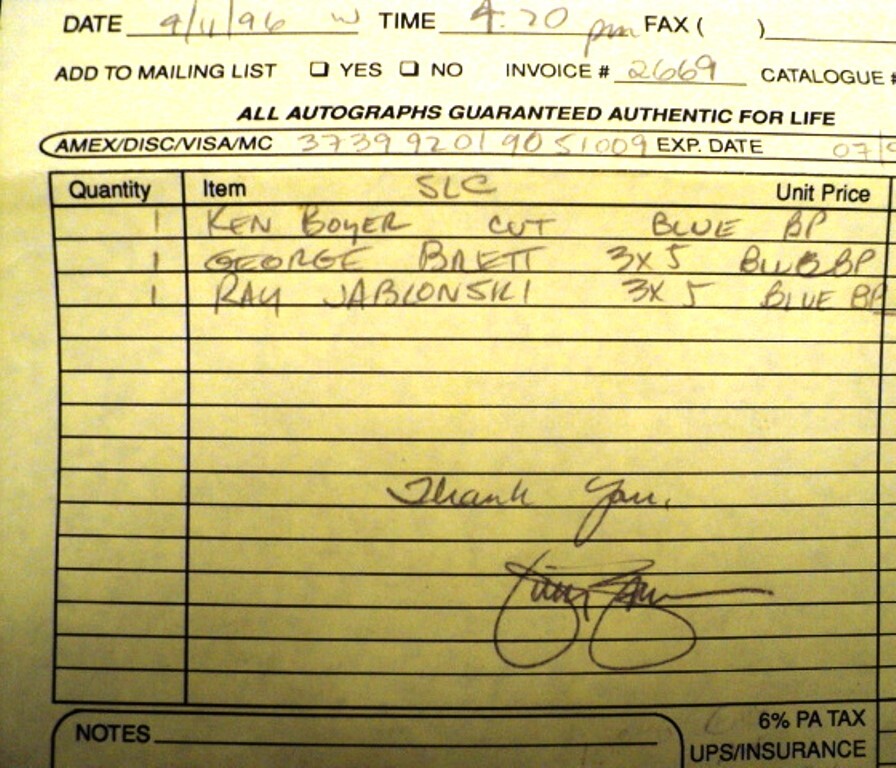 DATE 9/11/96 W TIME 4:20 pm FAX ( )
ADD TO MAILING LIST ☐ YES ☐ NO INVOICE # 2669 CATALOGUE #
ALL AUTOGRAPHS GUARANTEED AUTHENTIC FOR LIFE
AMEX/DISC/VISA/MC 3739 920190 51009 EXP. DATE 07/9
Quantity Item SLC Unit Price
1 KEN BOYER CUT BLUE BP
1 GEORGE BRETT 3X5 BLUE BP
1 RAY JABLONSKI 3X5 BLUE BP
Thank You,
NOTES
6% PA TAX
UPS/INSURANCE